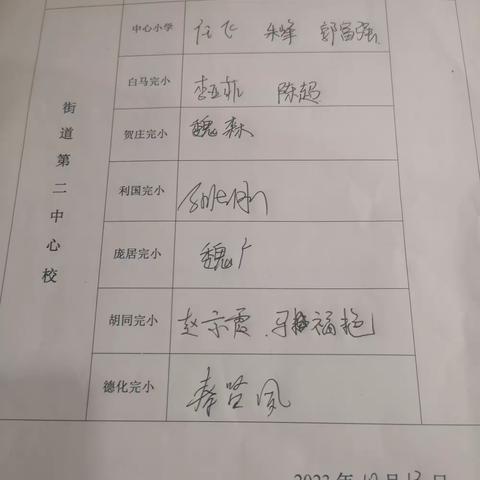 中心小学 任飞 朱峰 郭富强
白马完小 李亚菲 陈超
贺庄完小 魏森
街道第二中心校
利国完小
庞居完小 魏广
胡同完小 赵京霞
德化完小 秦
2023年10月13日